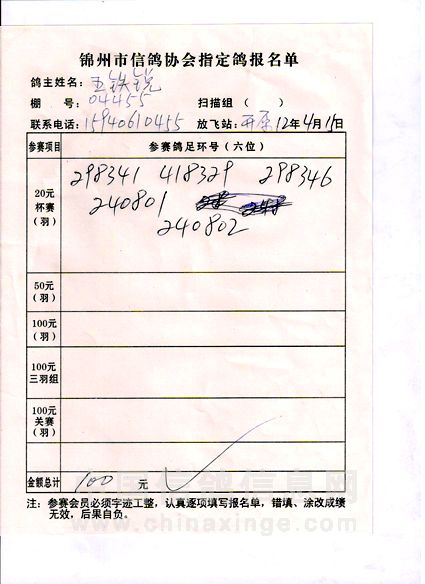 锦州市信鸽协会指定鸽报名单
鸽主姓名：王铁锐
棚 号：04455 扫描组（ ）
联系电话：15940610455 放飞站：开原 12年4月15日
参赛项目 参赛鸽足环号（六位）
20元杯赛（羽） 298341 418329 298346
240801
240802
50元（羽）
100元（羽）
100元三羽组
100元关赛（羽）
金额总计 100 元
注：参赛会员必须字迹工整，认真逐项填写报名单，错填、涂改成绩
无效，后果自负。
中国信鸽信息网
www.chinaxinge.com